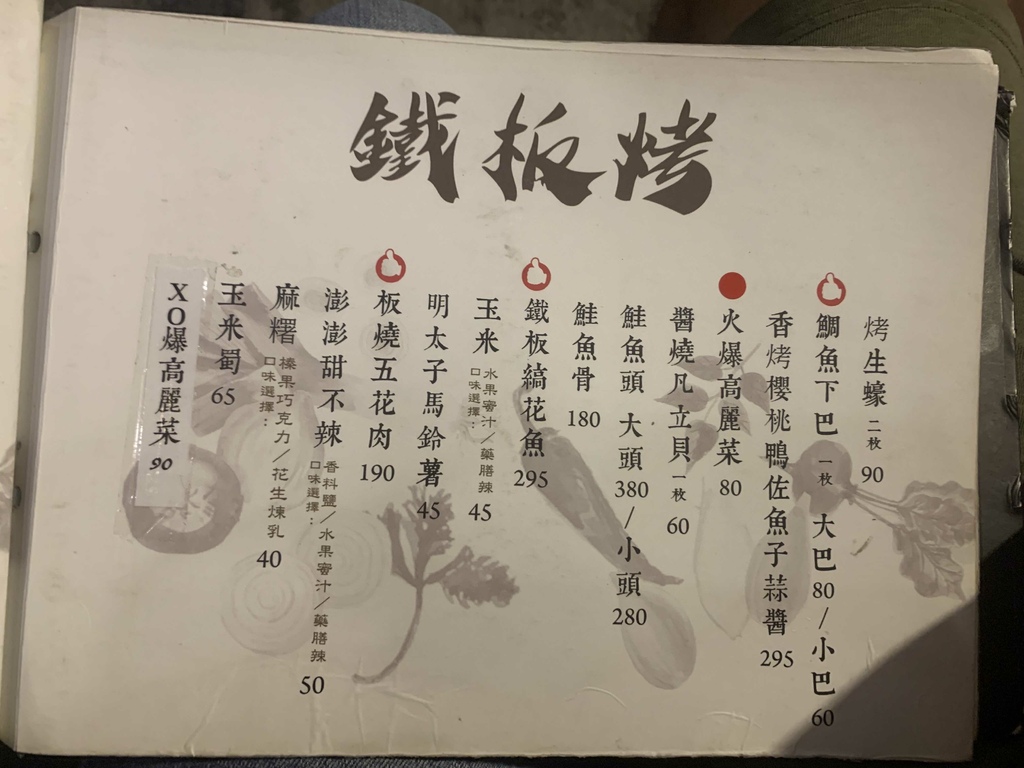 鐵板烤
烤生蠔 二枚 90
鯛魚下巴 一枚 大巴80/小巴60
香烤櫻桃鴨佐魚子蒜醬 295
火爆高麗菜 80
醬燒凡立貝 一枚 60
鮭魚頭 大頭380/小頭280
鮭魚骨 180
鐵板縞花魚 295
玉米 口味選擇：水果蜜汁/藥膳辣 45
明太子馬鈴薯 45
板燒五花肉 190
澎澎甜不辣 口味選擇：香料鹽/水果蜜汁/藥膳辣 50
麻糬 口味選擇：榛果巧克力/花生煉乳 40
玉米蜀 65
XO爆高麗菜 90